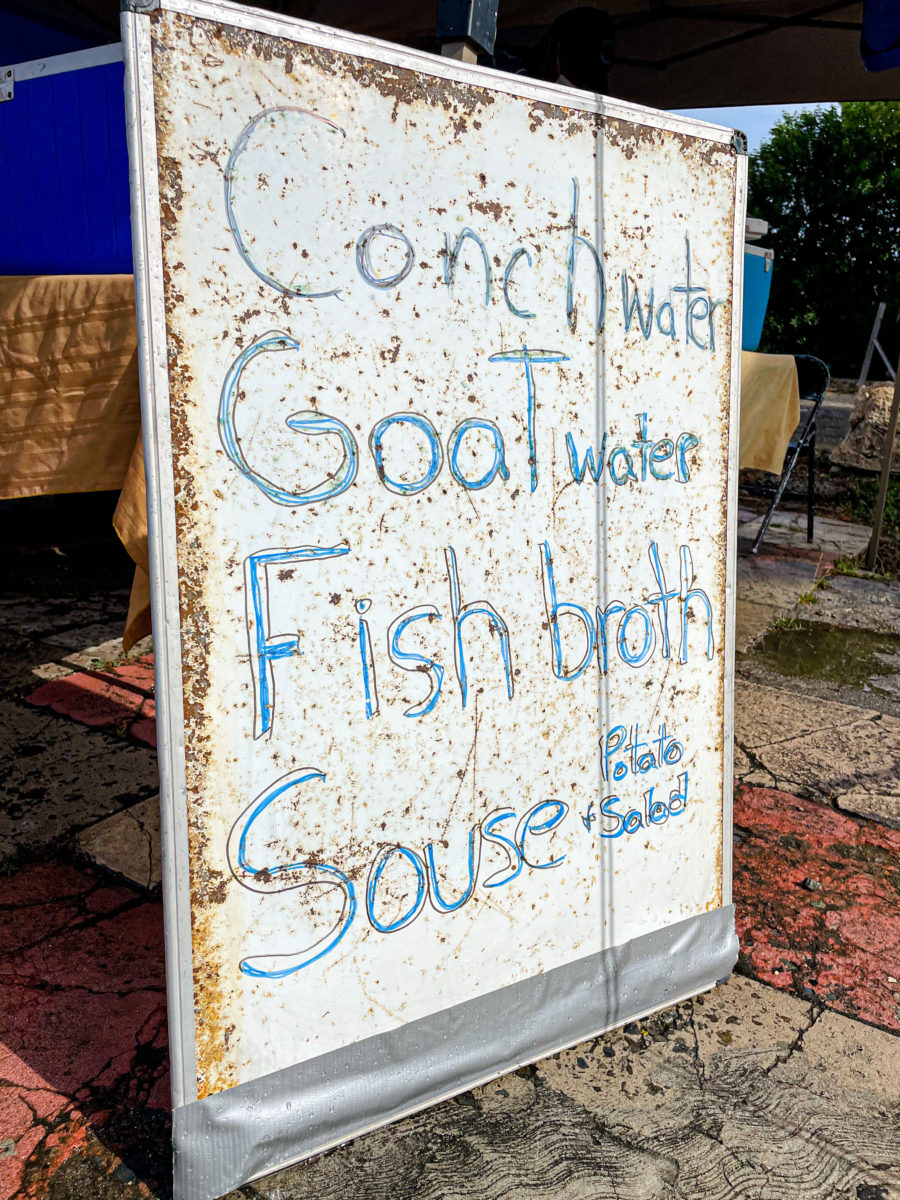 Conch water
GoaT water
Fish broth
Souse + Potato
Salad